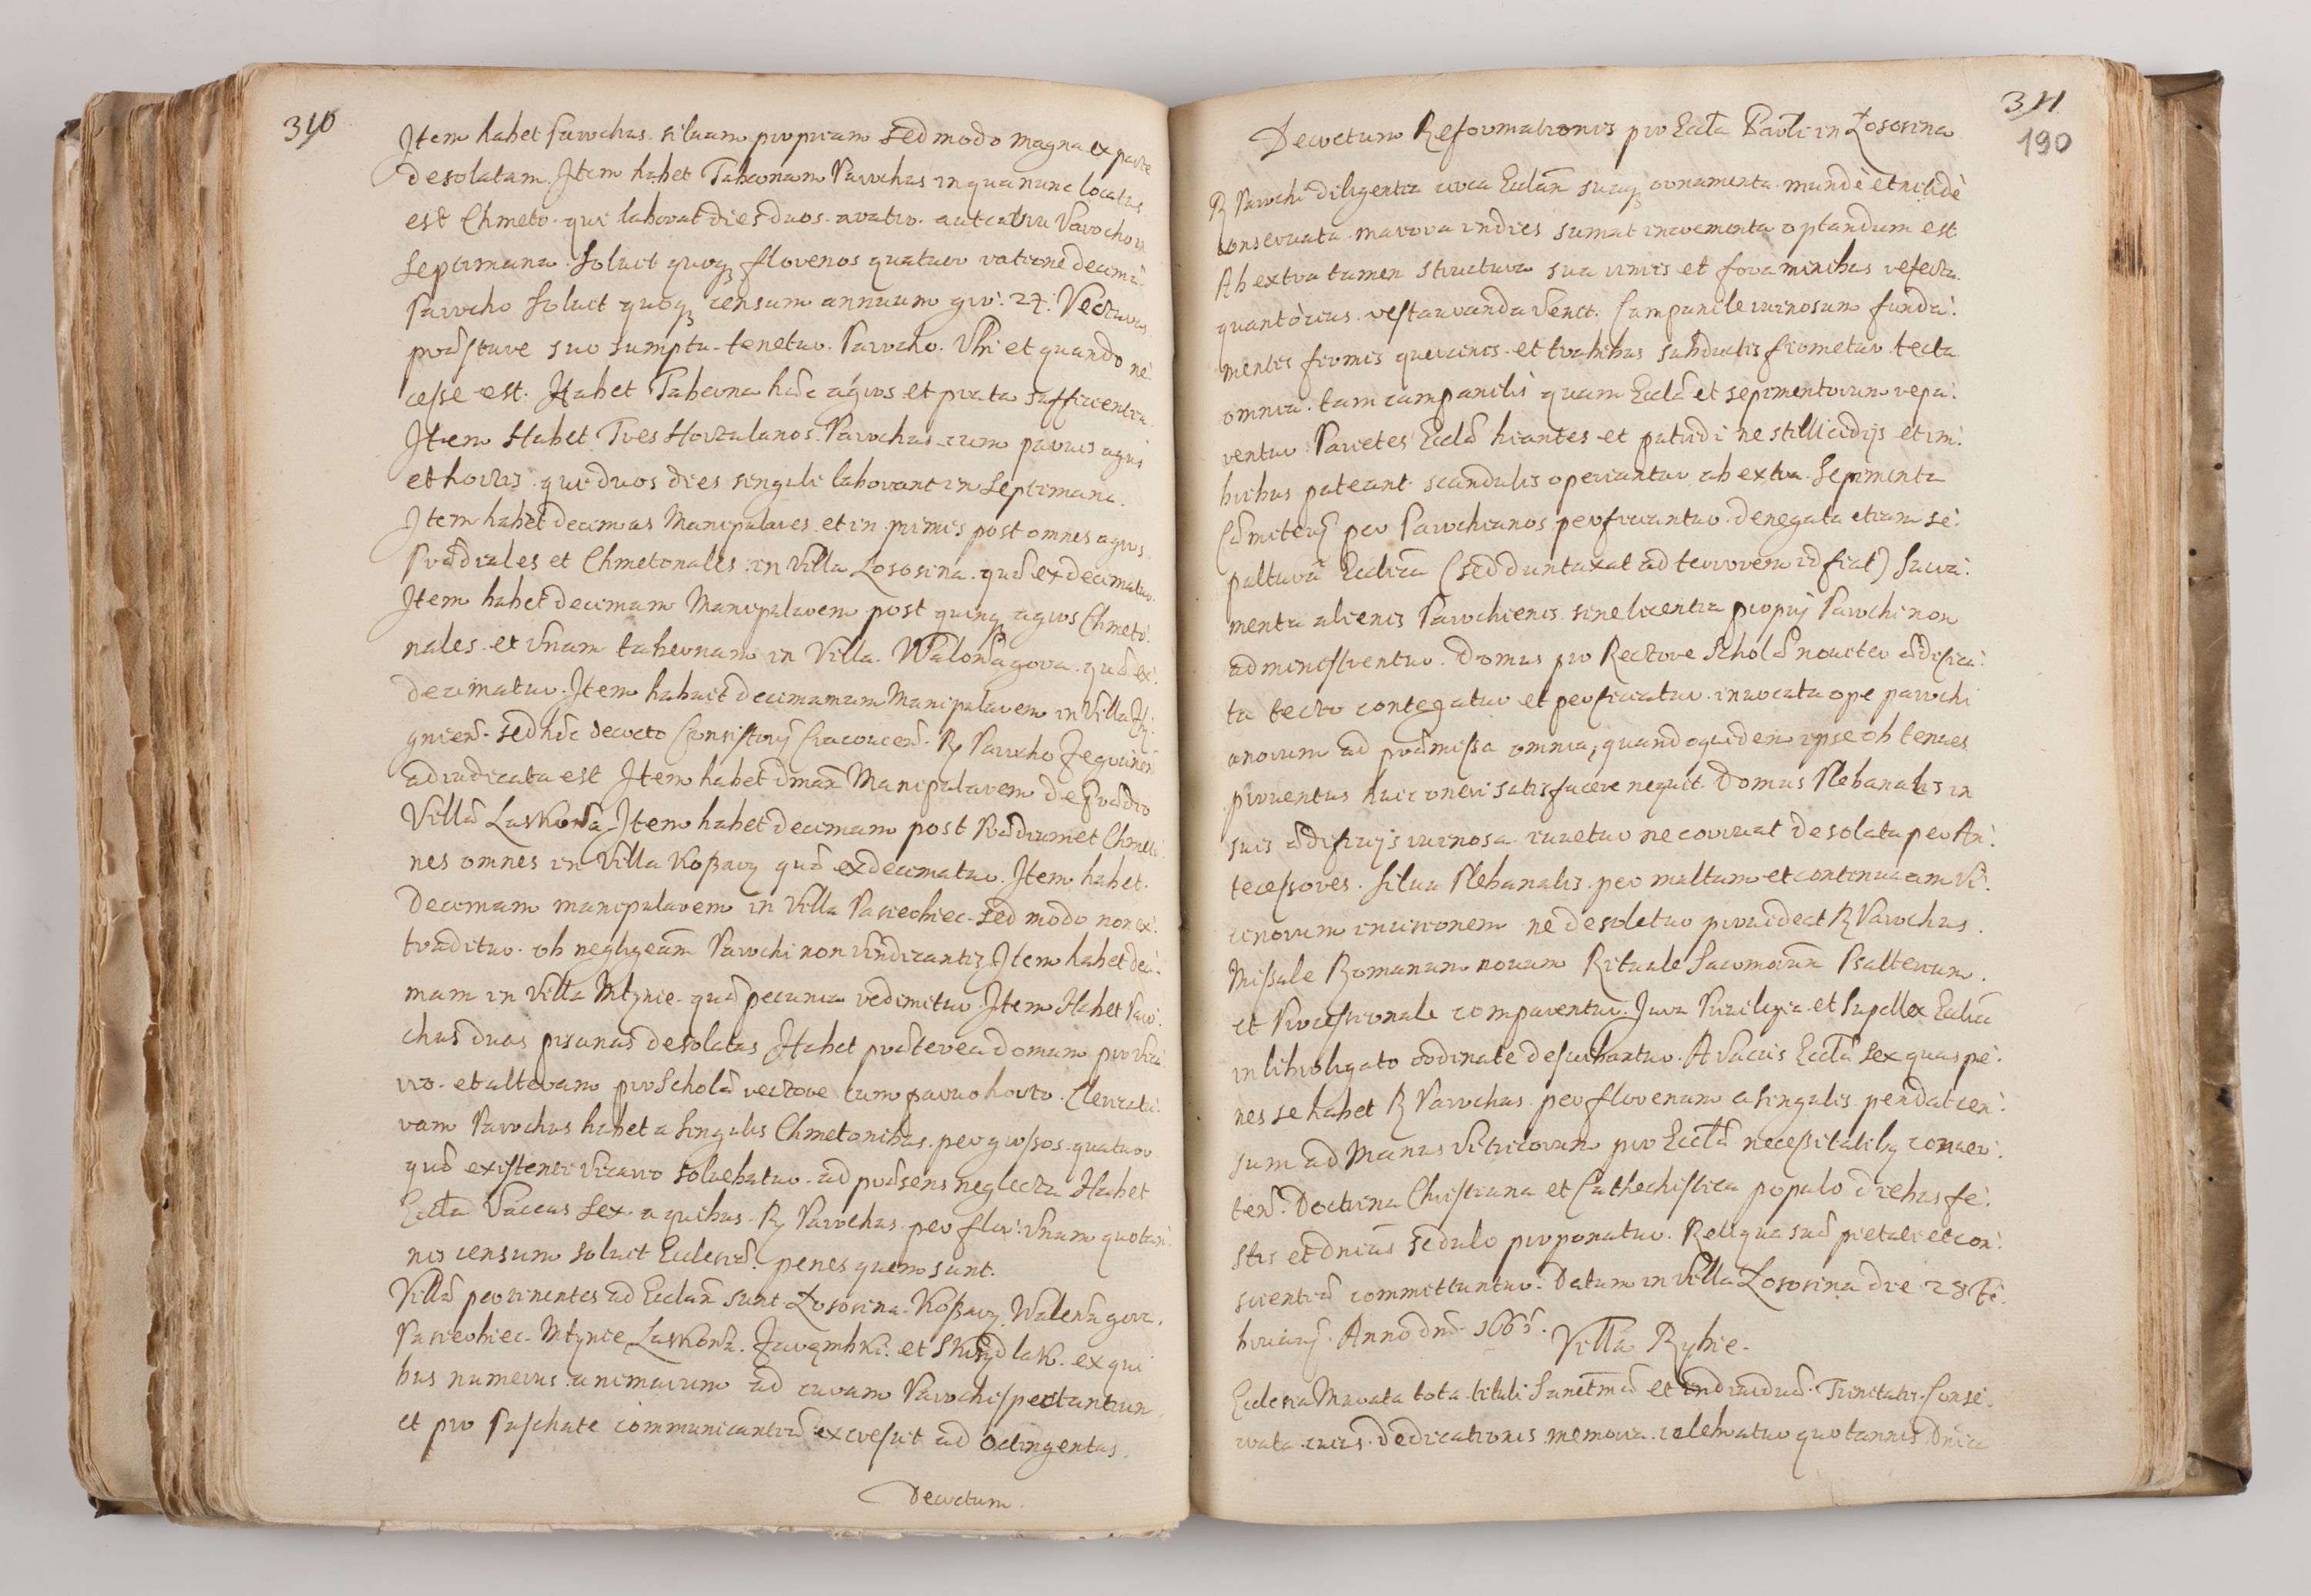 310
Item habet Parochus siluam propriam sed modo magna ex parte
desolatam. Item habet Tabernam Parochus in qua nunc locatus
est Chmeto qui laborat dies duos aratro aut curru Parocho in
Septimana. Soluit quoqꝫ florenos quatuor ratione decimæ
Parocho soluit quoqꝫ censum annuum gr: 24. Vecturas
præstare suo sumptu tenetur Parocho. Vbi et quando ne:
cesse est. Habet Taberna hæc agros et prata sufficientia
Item Habet Tres Hortulanos Parochus cum paruis agris
et hortis qui duos dies singuli laborant in Septimana.
Item habet decimas Manipulares et in primis post omnes agros
Prædiales et Chmetonales in Villa Lososina quæ exdecimatur.
Item habet decimam Manipularem post quinqꝫ agros Chmeto:
nales et vnam tabernam in Villa Walowa gora quæ ex:
decimatur. Item habuit decimam Manipularem in Villa
sed hæc decreto Consistorij Cracouien. R Parocho
adiudicata est Item habet Xmam Manipularem de Prædio
Villæ Laskowa Item habet decimam post Prædium et Chmeto:
nes omnes in Villa Koßary quæ exdecimatur. Item habet
Decimam manipularem in Villa Pasierbiec sed modo non ex:
traditur ob negligeam Parochi non vindicantis Item habet deci:
mam in Villa Młynie quæ pecunia redimitur. Item Habet Paro:
chus duas piscinas desolatas Habet præterea domum pro Vica
rio et alteram pro Scholæ rectore cum paruo horto. Clericatu:
ram Parochus habet a singulis Chmetonibus per grossos quatuor
quæ existenti Vicario soluebatur ad præsens neglecta Habet
Eccla Vaccas sex a quibus R Parochus per flor: vnum quotan:
nis censum soluit Ecclesiæ penes quem sunt.
Villæ pertinentes ad Ecclam sunt Lososina Koßary, Walowa gora,
Pasierbiec Młynie Laskowa. Jaworząbki et Skrzydlak ex qui
bus numerus animarum ad curam Parochi spectantium
et pro Paschate communicantiū excresit ad octingentas.
Decretum.
311
190
Decretum Reformationis pro Eccla Parli in Lososina
R Parochi diligentia circa Eclam suaqꝫ ornamenta mundè et nitidè
conseruata maiora indies sumat incrementa optandum est
Ab extra tamen structura sua rimis et foraminibus referta
quantòcius restauranda venit. Campanile ruinosum funda:
mentis firmis quercinis et trabibus subductis firmetur tecta
omnia tam campanilis quam Ecclæ et sepimentorum repa:
rentur Parietes Ecclæ hiantes et putridi ne stillicidijs et im:
bribus pateant scandulis operiantur ab extra Sepimenta
Cæmiterij per Parochianos perficiantur denegata etiam se:
pultura Ecclica (sed duntaxat ad terrorem id fiat) Sacra:
menta alienis Parochienis sine licentia proprij Parochi non
administrentur. Domus pro Rectore Scholæ nouiter ædifica:
ta tecto contegatur et perficiatur inuocata ope parochi
anorum ad præmissa omnia, quandoquidem ipse ob tenues
prouentus huic oneri satisfacere nequit. Domus Plebanalis in
suis ædificijs ruinosa curetur ne corruat desolata per An:
tecessores. Silua Plebanalis per multam et continuam vi:
cinorum incisionem ne desoletur prouideat R Parochus.
Missale Romanum nouum Rituale Sacrorum Psalterium
et Processionale comparentur. Jura Priuilegia et Supellex Ecclica
in libro ligato ordinate describantur. A Vaccis Ecclæ sex quas pe:
nes se habet R Parochus per florenum a singulis pendat cen:
sum ad Manus Vitricorum pro Ecclæ necessitatibꝫ conuer:
ten. Doctrina Christiana et Cathechistica populo diebus fe:
stis et dnicis sedulo proponatur. Reliqua suæ pietati et con:
scientiæ committuntur. Datum in Villa Lososina die 28 Fe:
bruarij. Anno dni 1665.
Villa Rybie.
Ecclesia Murata tota tituli Sanctmæ et Indiuiduæ Trinitatis Conse:
crata cuius dedicationis memoria celebratur quotannis Dnica